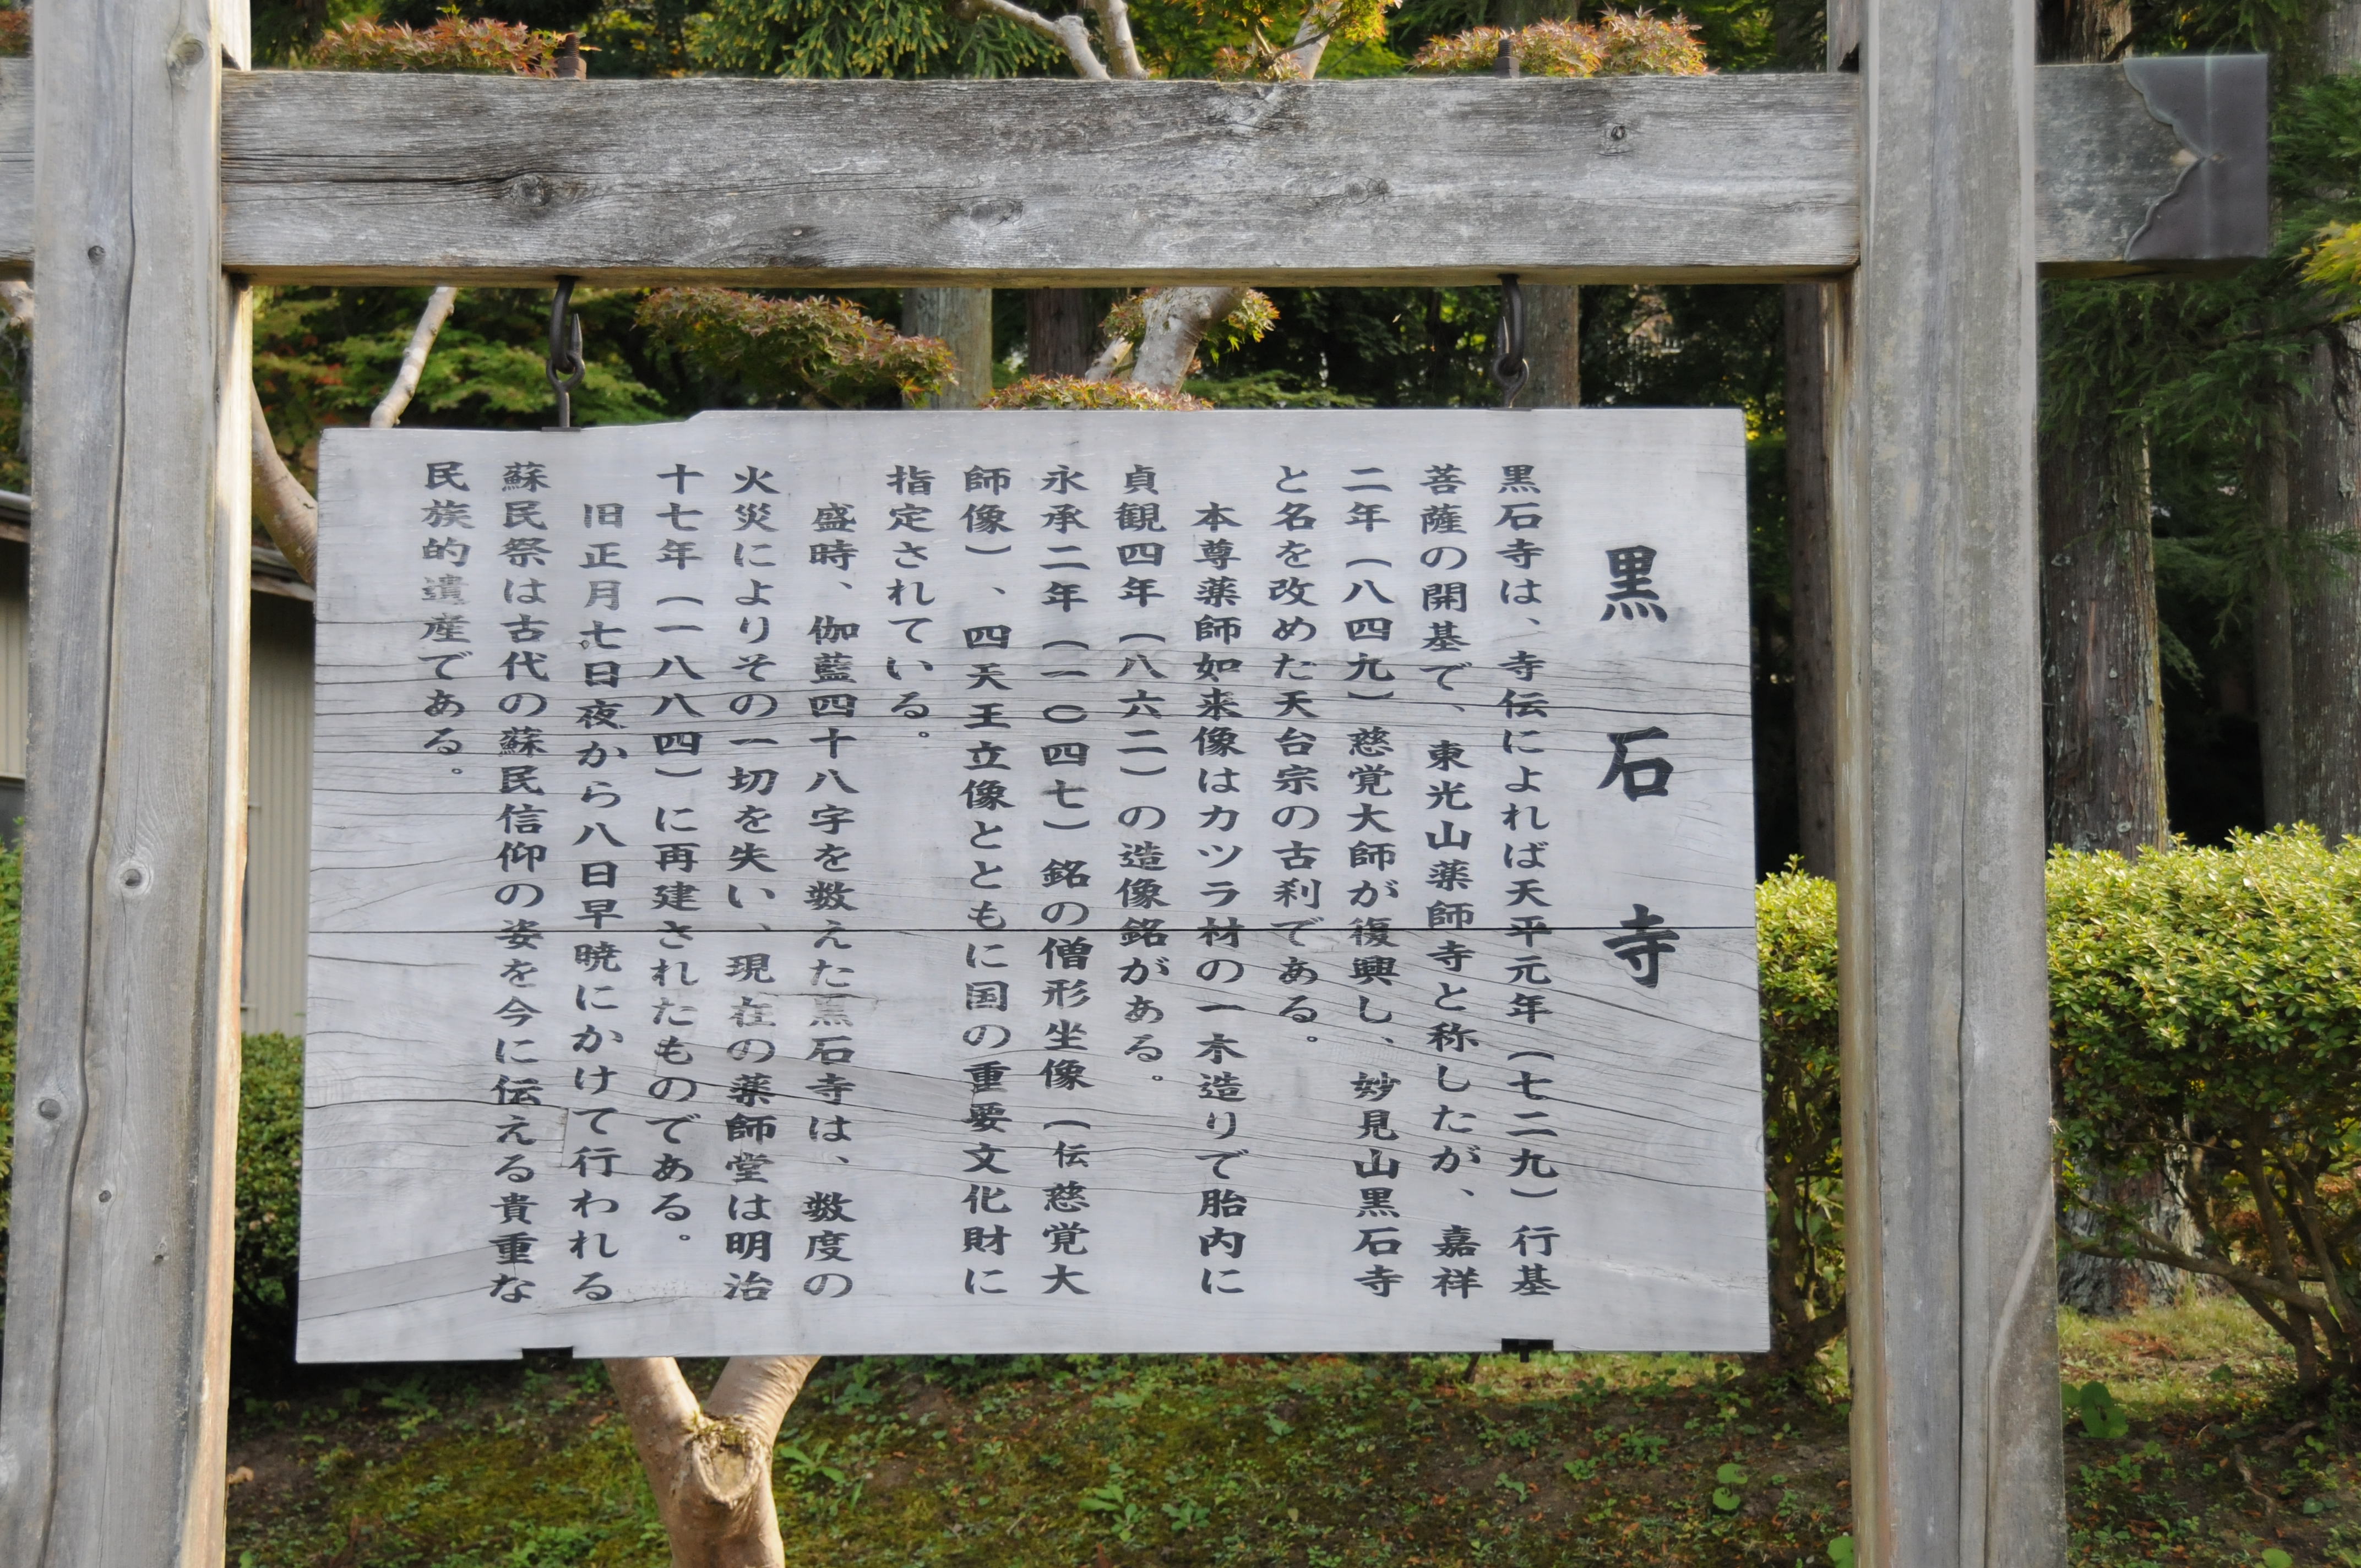 黒石寺
黒石寺は、寺伝によれば天平元年（七二九）行基
菩薩の開基で、東光山薬師寺と称したが、嘉祥
二年（八四九）慈覚大師が復興し、妙見山黒石寺
と名を改めた天台宗の古刹である。
本尊薬師如来像はカツラ材の一木造りで胎内に
貞観四年（八六二）の造像銘がある。
永承二年（一〇四七）銘の僧形坐像（伝慈覚大
師像）、四天王立像とともに国の重要文化財に
指定されている。
盛時、伽藍四十八字を数えた黒石寺は、数度の
火災によりその一切を失い、現在の薬師堂は明治
十七年（一八八四）に再建されたものである。
旧正月七日夜から八日早暁にかけて行われる
蘇民祭は古代の蘇民信仰の姿を今に伝える貴重な
民族的遺産である。